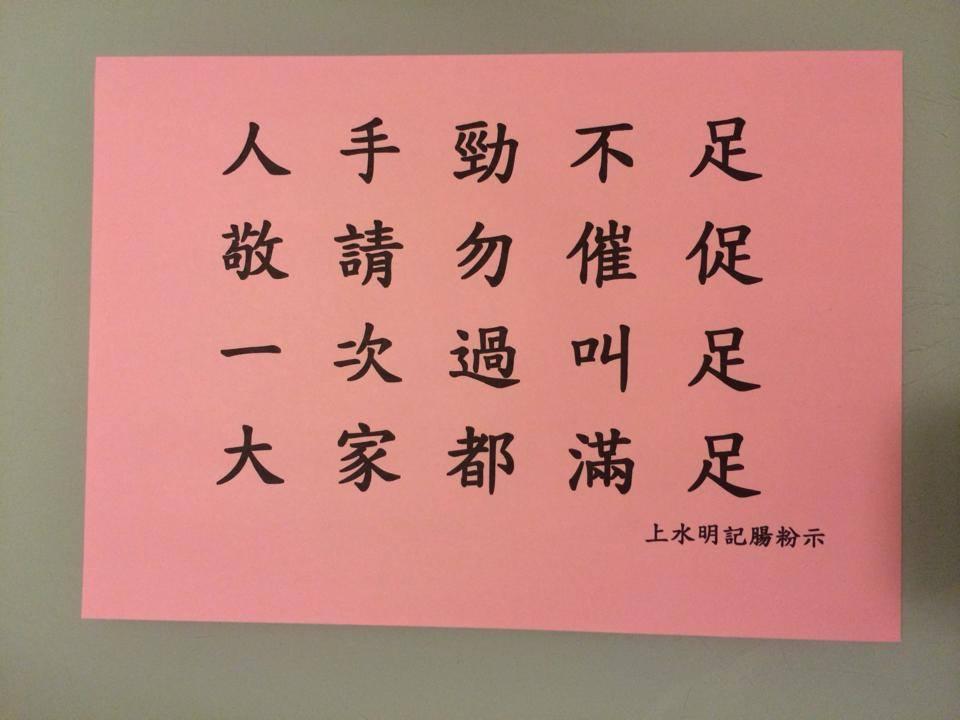 人手勁不足
敬請勿催促
一次過叫足
大家都滿足
上水明記腸粉示